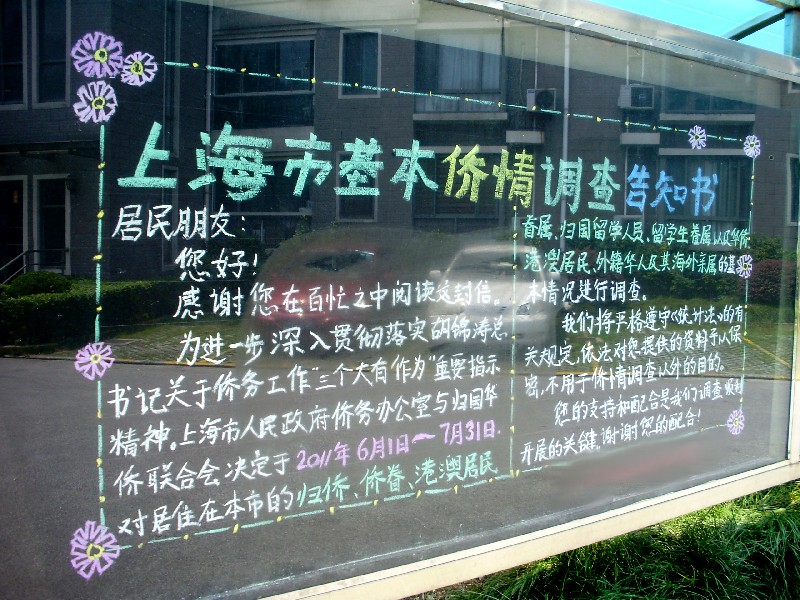 上海市基本侨情调查告知书
居民朋友：
您好！
感谢您在百忙之中阅读这封信。
为进一步深入贯彻落实胡锦涛总
书记关于侨务工作"三个大有作为"重要指示
精神。上海市人民政府侨务办公室与归国华
侨联合会决定于2011年6月1日一7月31日.
对居住在本市的归侨、侨眷、港澳居民
首属、归国留学人员、留学生眷属以及华侨
港澳居民、外籍华人及其海外亲属的基
本情况进行调查。
我们将严格遵守《统计法》的有
关规定，依法对您提供的资料予以保
密，不用于侨情调查以外的目的。
您的支持和配合是我们调查顺利
开展的关键。谢谢您的配合！